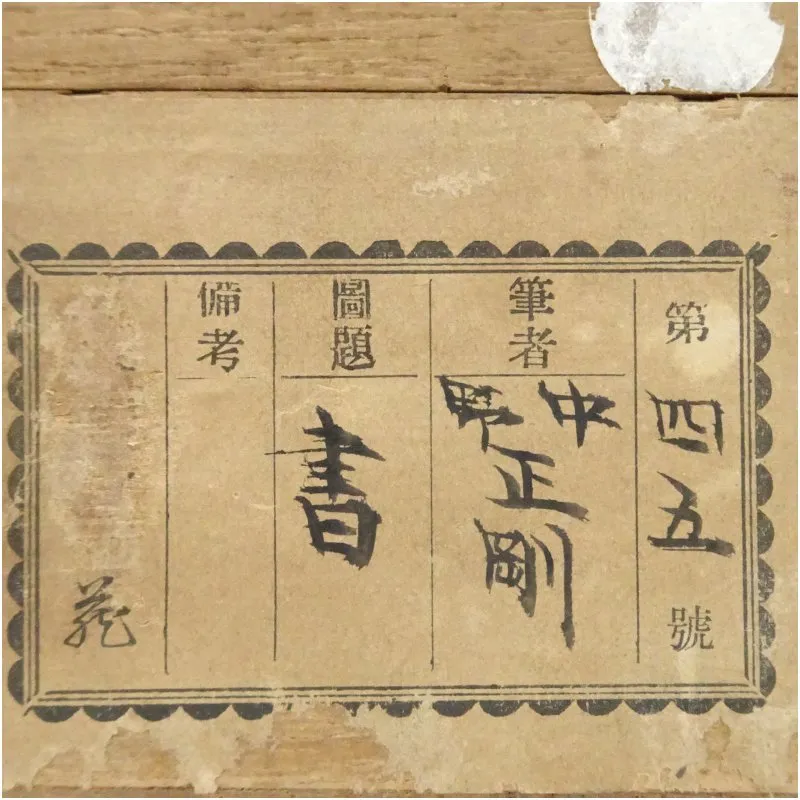 第四五號
筆者
中野
正剛
圖題
書
備考
藏